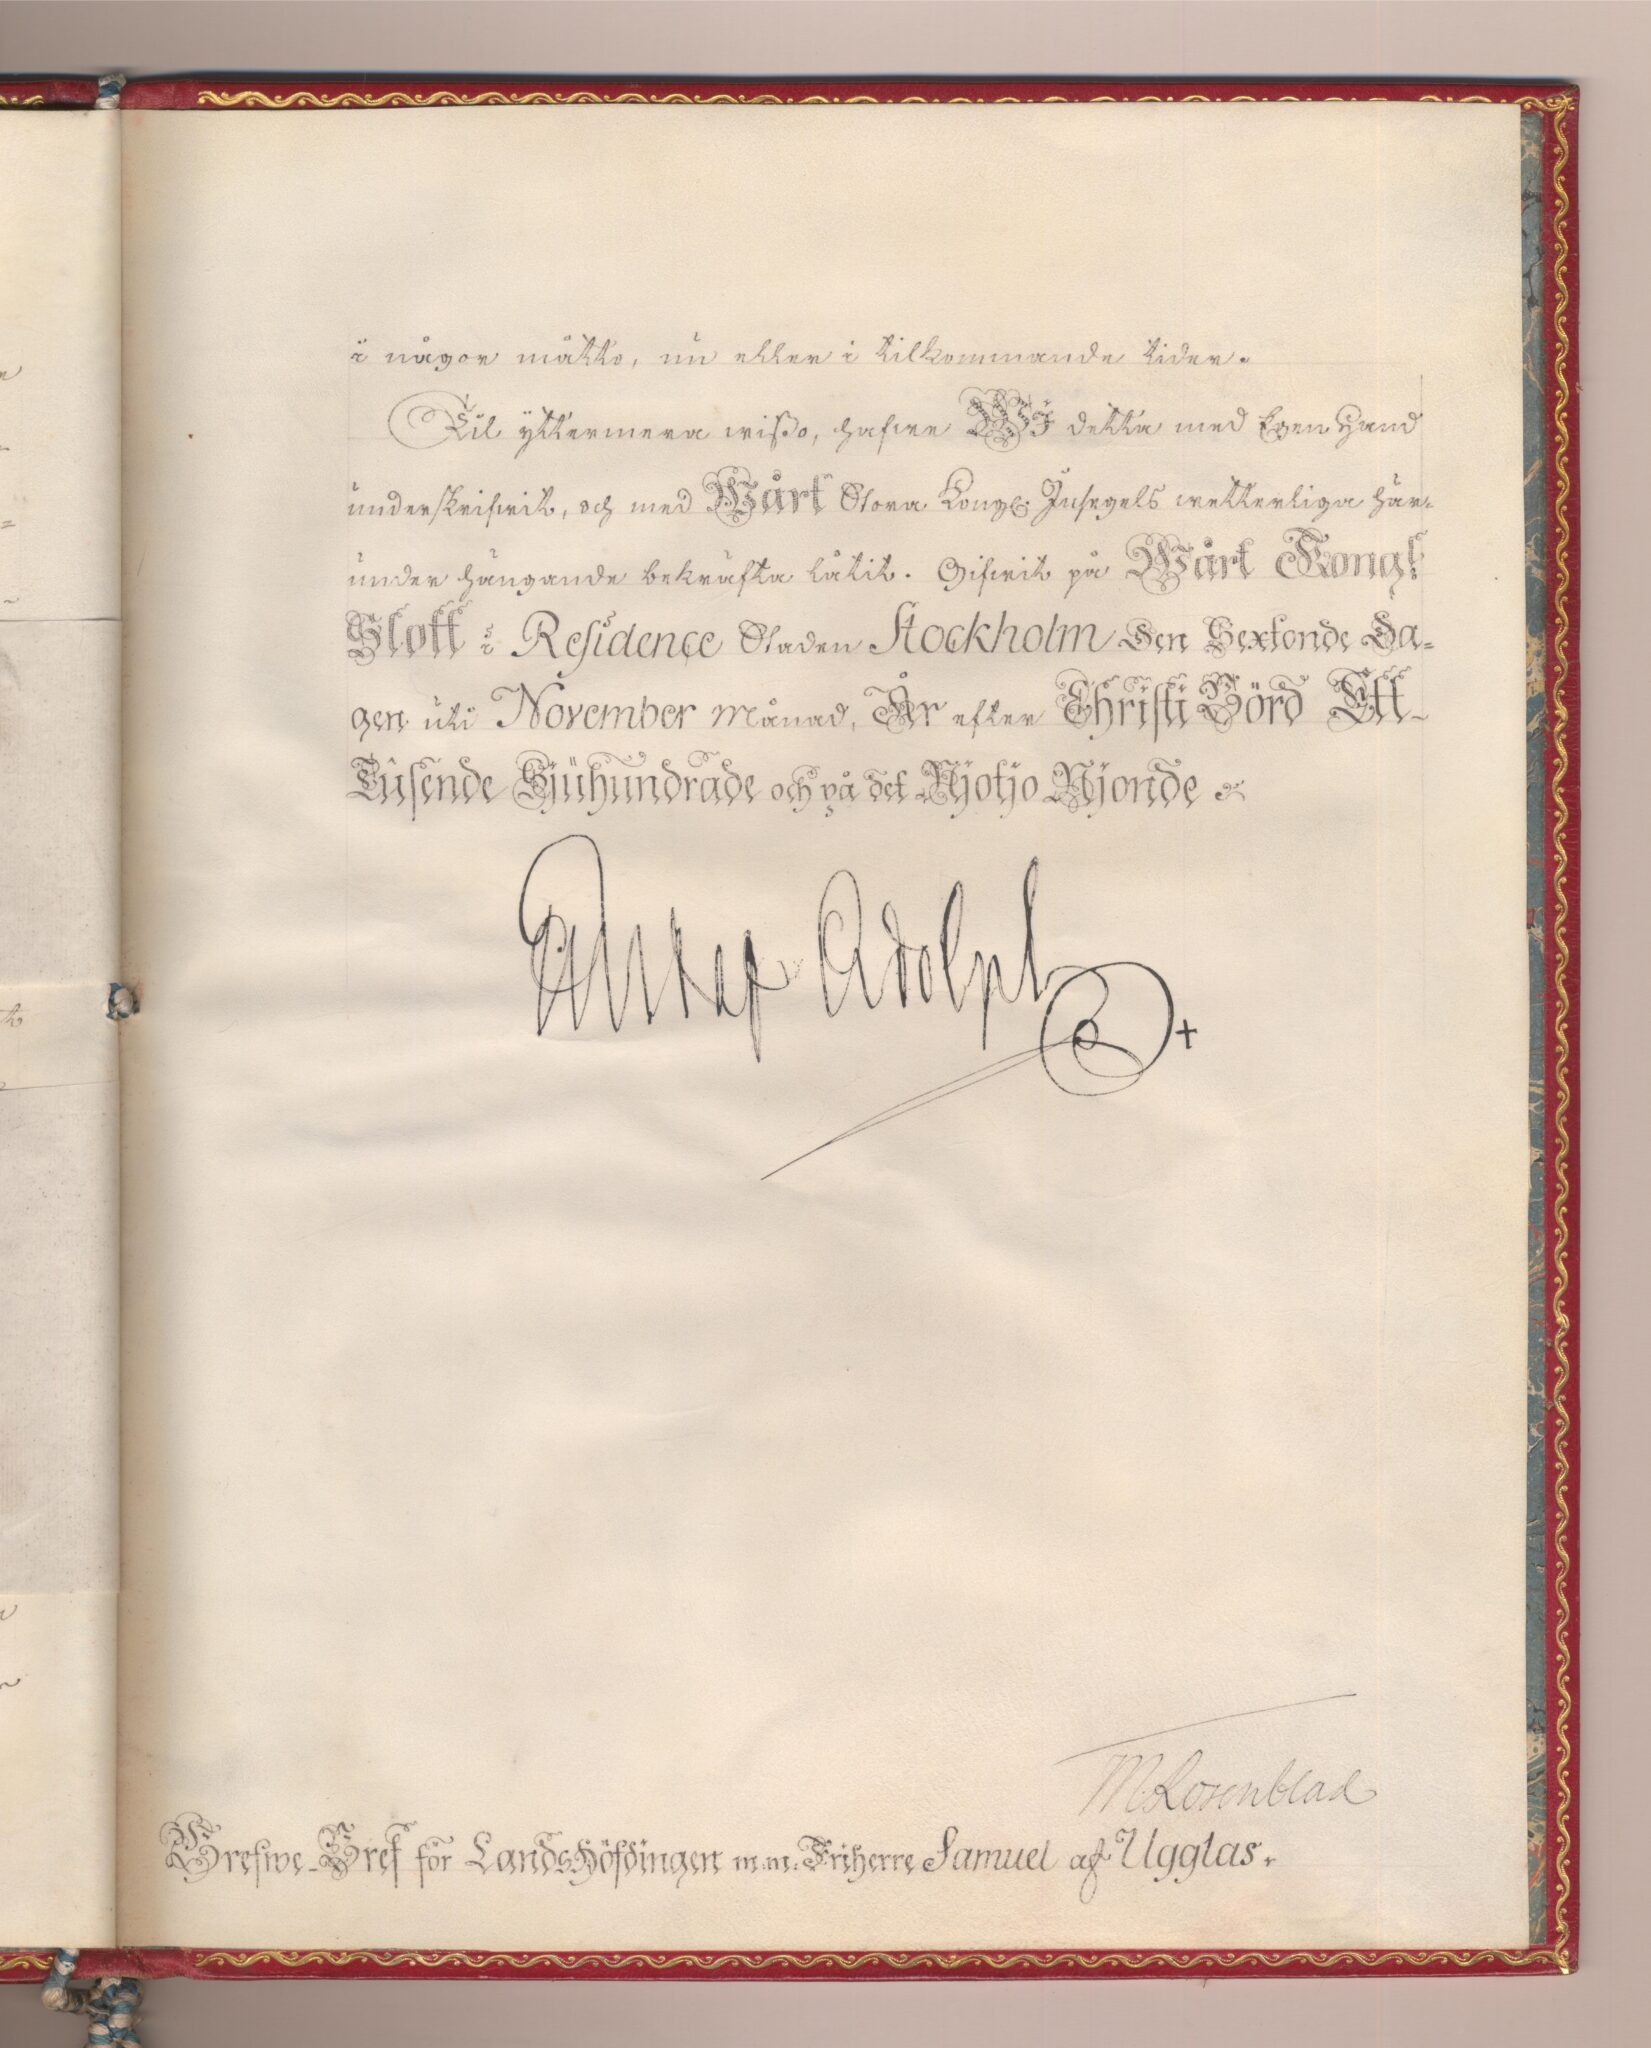 i någor måtto, nu eller i tilkommande tider.
Til yttermera wißo, hafwe Wi detta med Egen Hand
underskrifwit, och med Wårt Stora Kongl. Insegels wetterliga här-
under hängande bekräfta låtit. Gifwit på Wårt Kongl.
Slott i Residence Staden Stockholm Den Sextonde Da-
gen uti November Månad, År efter Christi Börd Ett-
Tusende Sjuhundrade och på det Njotjo Njonde
Gustaf Adolph
M. Rosenblad
Grefwe-Bref för LandsHöfdingen m.m. Friherre Samuel af Ugglas.